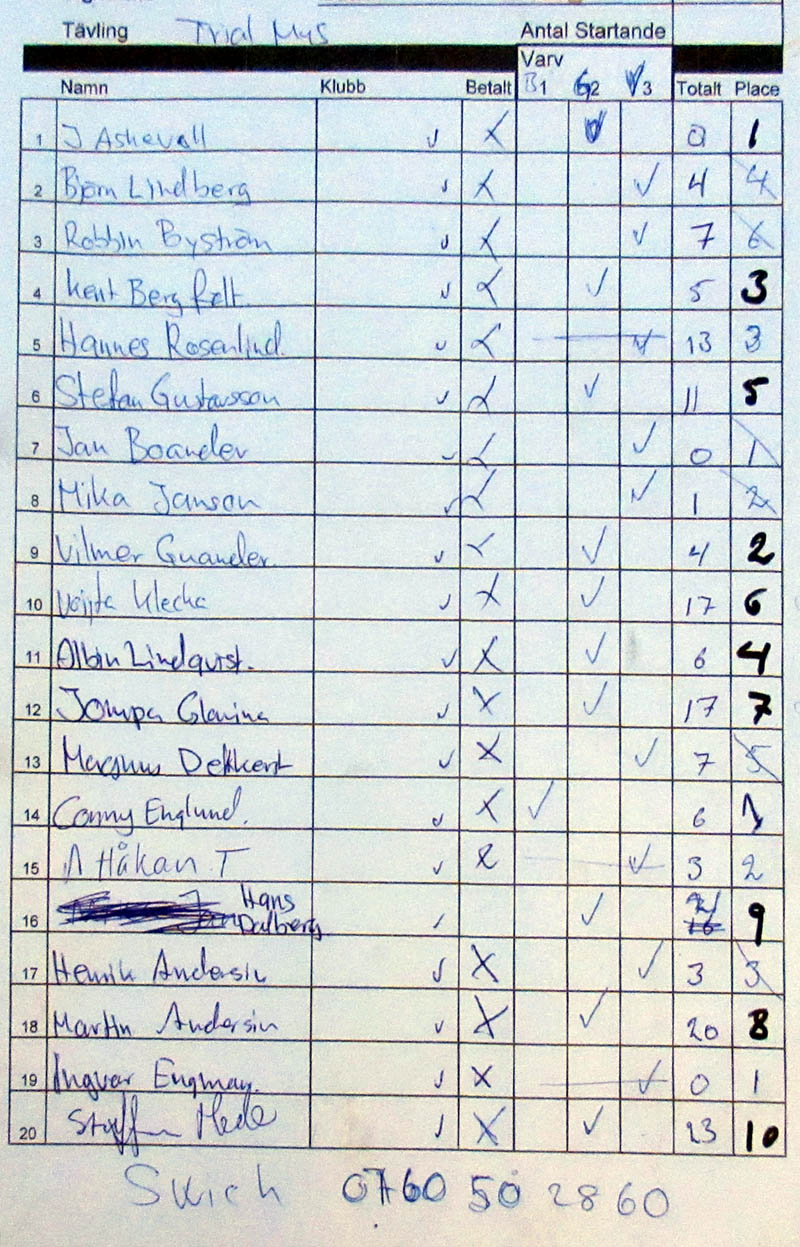 Tävling Trial Mys Antal Startande
Varv
Namn Klubb Betalt B1 G2 V3 Totalt Place
1 J Askevall ✓ X ✓ 0 1
2 Björn Lindberg ✓ X ✓ 4 4
3 Robbin Byström ✓ X ✓ 7 6
4 Kent Bergfelt ✓ X ✓ 5 3
5 Hannes Rosenlind. ✓ X ✓ 13 3
6 Stefan Gustavsson ✓ X ✓ 11 5
7 Jan Boander ✓ X ✓ 0 1
8 Mika Janson ✓ X ✓ 1 2
9 Vilmer Gnander. ✓ X ✓ 4 2
10 Vojta Klecka ✓ X ✓ 17 6
11 Albin Lindqvist. ✓ X ✓ 6 4
12 Jompa ✓ X ✓ 17 7
13 Magnus Dekkert ✓ X ✓ 7 5
14 Conny Englund. ✓ X ✓ 6 1
15 Håkan T ✓ X ✓ 3 2
16 Hans Dalberg ✓ ✓ 21 9
17 Henrik Andersin ✓ X ✓ 3 3
18 Martin Andersin ✓ X ✓ 20 8
19 Ingvar Engman. ✓ X ✓ 0 1
20 Staffan Hede ✓ X ✓ 23 10
Swich 0760 50 28 60